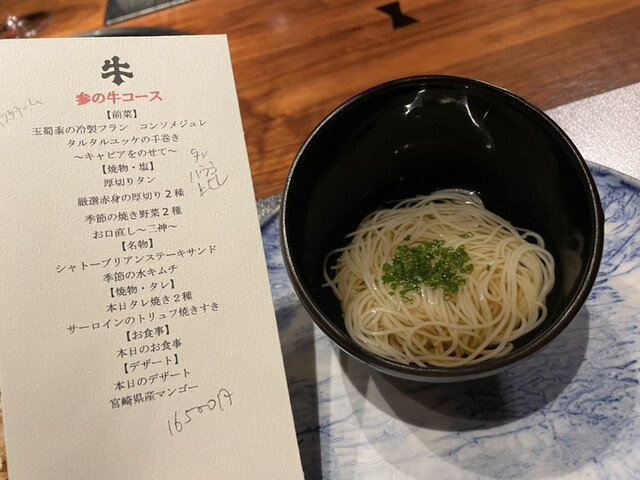 牛
参の牛コース
【前菜】
玉蜀黍の冷製フラン　コンソメジュレ
タルタルユッケの手巻き
～キャビアをのせて～
【焼物・塩】
厚切りタン
厳選赤身の厚切り２種
季節の焼き野菜２種
お口直し～三神～
【名物】
シャトーブリアンステーキサンド
季節の水キムチ
【焼物・タレ】
本日タレ焼き２種
サーロインのトリュフ焼きすき
【お食事】
本日のお食事
【デザート】
本日のデザート
宮崎県産マンゴー
16500円